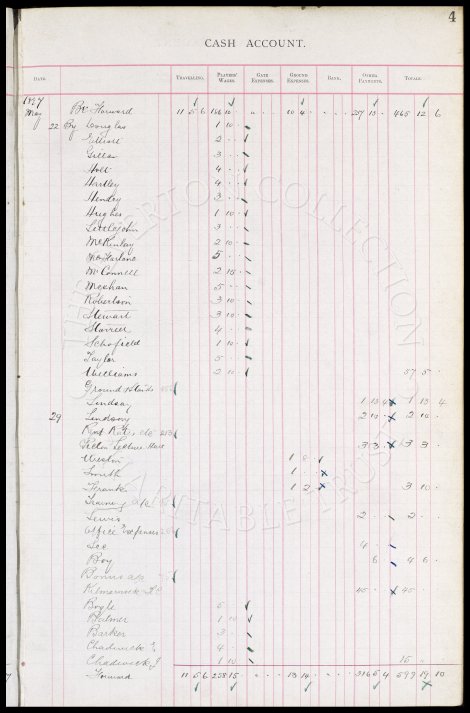 4
CASH ACCOUNT.
DATE. TRAVELLING. PLAYERS' WAGES. GATE EXPENSES. GROUND EXPENSES. BANK. OTHER PAYMENTS. TOTALS.
1897
May Bt Forward 11 5 6 166 10 10 4 257 13 465 12 6
22 By Douglas 1 10
Elliott 2
Gillan 3
Holt 4
Hartley 4
Henley 3
Hughes 1 10
Littlejohn 3
McKinlay 2 10
McFarlane 5
McConnell 2 15
Meehan 5
Robertson 3 10
Stewart 3 10
Storrier 4
Schofield 1 10
Taylor 5
Williams 2 10 57 5
Ground & Stands
Lindsay 1 13 4 1 13 4
29 Lindsay 2 10 2 10
Rent Rates
Picton Lecture Hall 3 3 3 3
Weston 1 8
Smith 1
Frank 1 2 3 10
Training a/c
Lewis 2 2
Office Expenses
Lee 4
Boy 6 4 6
Bonus a/c
Kilmarnock F.C. 45 45
Bogle 5
Balmer 1 10
Barker 3
Chadwick E. 4
Chadwick J. 1 10 15
Forward 11 5 6 258 15 13 14 316 5 4 599 19 10
THE EVERTON COLLECTION
CHARITABLE TRUST